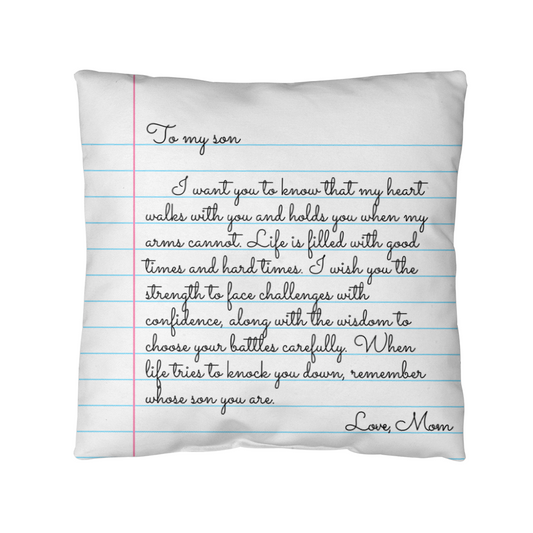 To my son
I want you to know that my heart
walks with you and holds you when my
arms cannot. Life is filled with good
times and hard times. I wish you the
strength to face challenges with
confidence, along with the wisdom to
choose your battles carefully. When
life tries to knock you down, remember
whose son you are.
Love, Mom